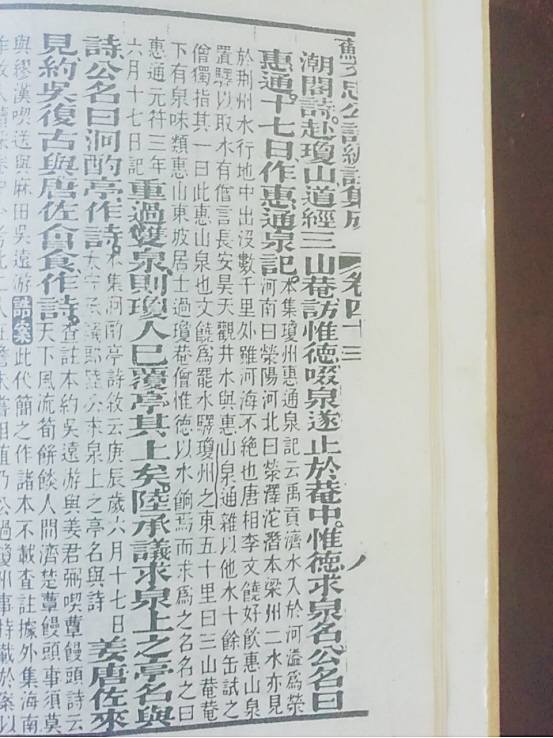 蘇文忠公詩編註集成 卷四十三
潮閣詩。赴瓊山道經三山菴訪惟德啜泉遂止於菴中。惟德求泉名公名曰
惠通。十七日作惠通泉記。
本集瓊州惠通泉記云禹貢濟水入於河溢為滎
河南曰滎陽河北曰滎澤沱潛本梁州二水亦見
於荊州水行地中出沒數千里外雖河海不絶也唐相李文饒好飲惠山泉
置驛以取水有僧言長安昊天觀井水與惠山泉通雜以他水十餘缶試之
僧獨指其一曰此惠山泉也文饒為罷水驛瓊州之東五十里曰三山菴菴
下有泉味類惠山東坡居士過瓊菴僧惟德以水餉焉而求為之名名之曰
惠通元符三年
六月十七日記
重過雙泉則瓊人已覆亭其上矣。陸承議求泉上之亭名與
詩。公名曰洞酌亭作詩。
本集洞酌亭詩敘云庚辰歲六月十七日
承議郎陸公求泉上之亭名與詩
姜唐佐來
見約吳復古與唐佐會食作詩。
查註本約吳遠游與姜君弼喫蕈饅頭詩云
天下風流筍餅餤人間濟楚蕈饅頭事須莫
與繆漢喫送與麻田吳遠游 誥案 此代簡之作諸本不載査註據外集海南